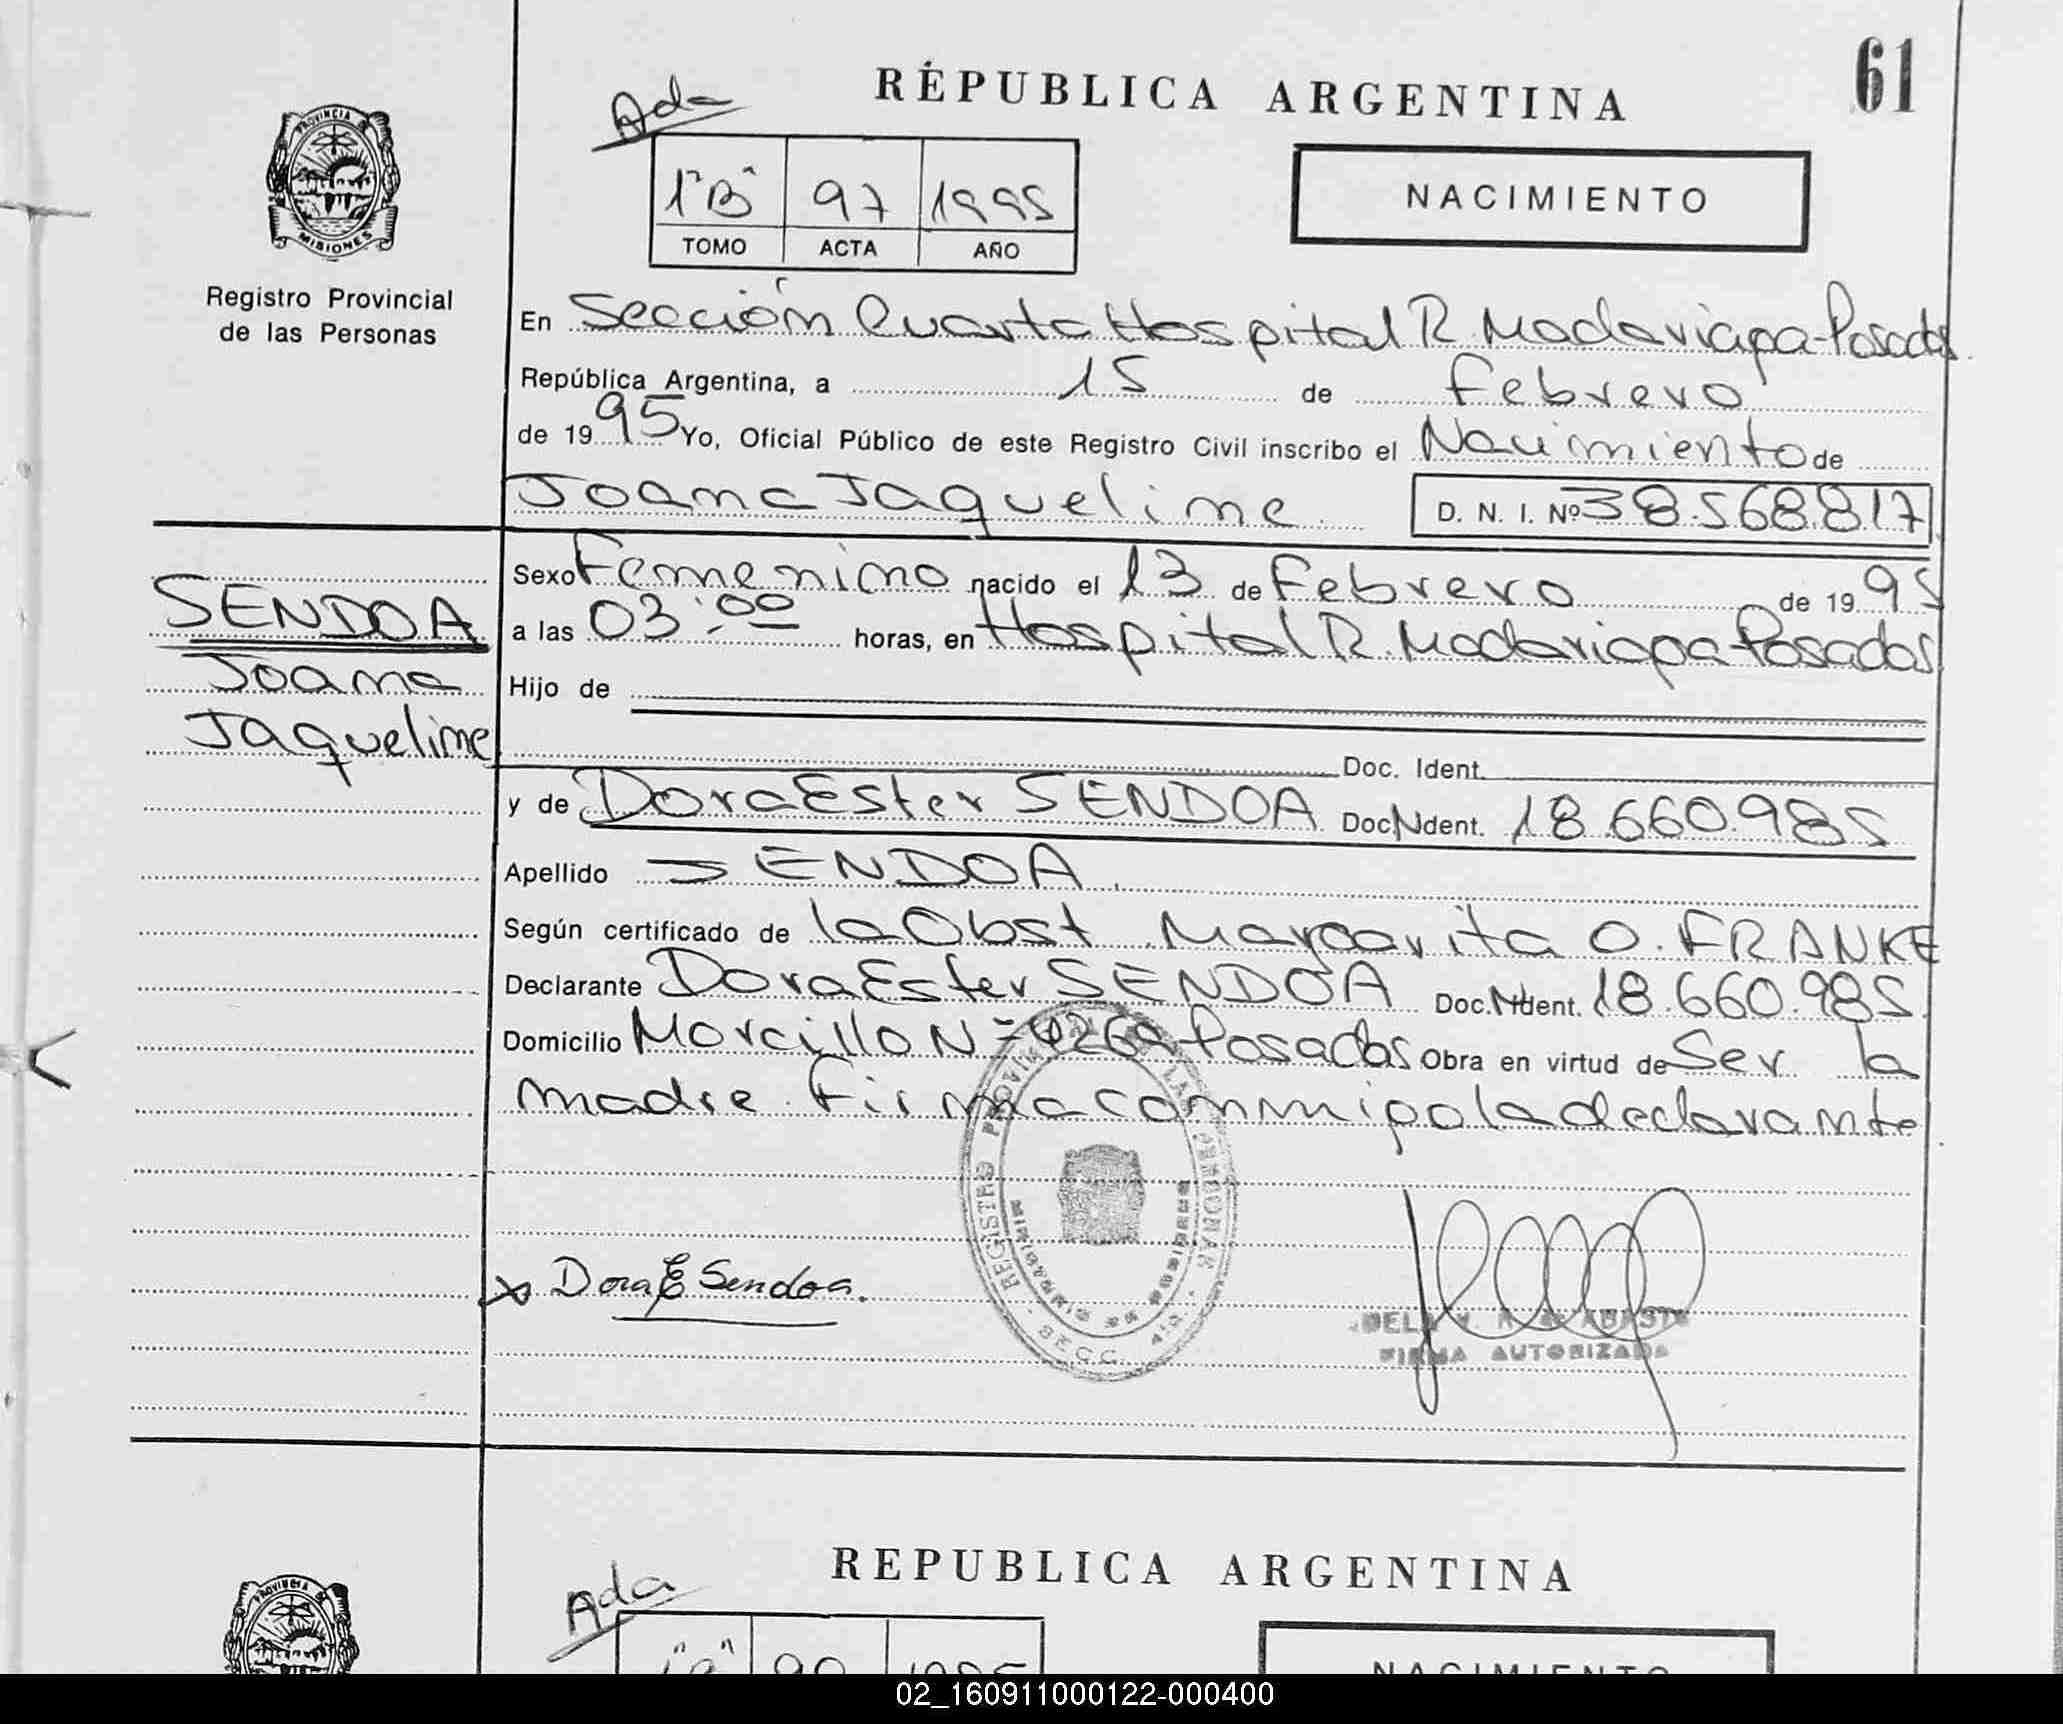 61
REPUBLICA ARGENTINA
Ada
1º"B" 97 1995
TOMO ACTA AÑO
NACIMIENTO
PROVINCIA DE
MISIONES
Registro Provincial
de las Personas
En Sección Cuarta Hospital R. Madariaga-Posadas
República Argentina, a 15 de Febrero
de 1995 Yo, Oficial Público de este Registro Civil inscribo el Nacimiento de
Joana Jaqueline D. N. I. Nº 38.568.817
SENDOA
Joana
Jaqueline
Sexo Femenino nacido el 13 de Febrero de 1995
a las 03:00 horas, en Hospital R. Madariaga-Posadas
Hijo de
Doc. Ident.
y de Dora Ester SENDOA Doc Ndent. 18.660.985
Apellido SENDOA
Según certificado de la Obst. Margarita O. FRANKE
Declarante Dora Ester SENDOA Doc. Ident. 18.660.985
Domicilio Morcillo Nº 4269 Posadas Obra en virtud de Ser la
madre. Firma conmigo la declarante
REGISTRO PROVINCIAL DE LAS PERSONAS
MISIONES
SECC. 4ta.
x Dora E Sendoa.
FIRMA AUTORIZADA
REPUBLICA ARGENTINA
Ada
PROVINCIA DE
NACIMIENTO
02_160911000122-000400